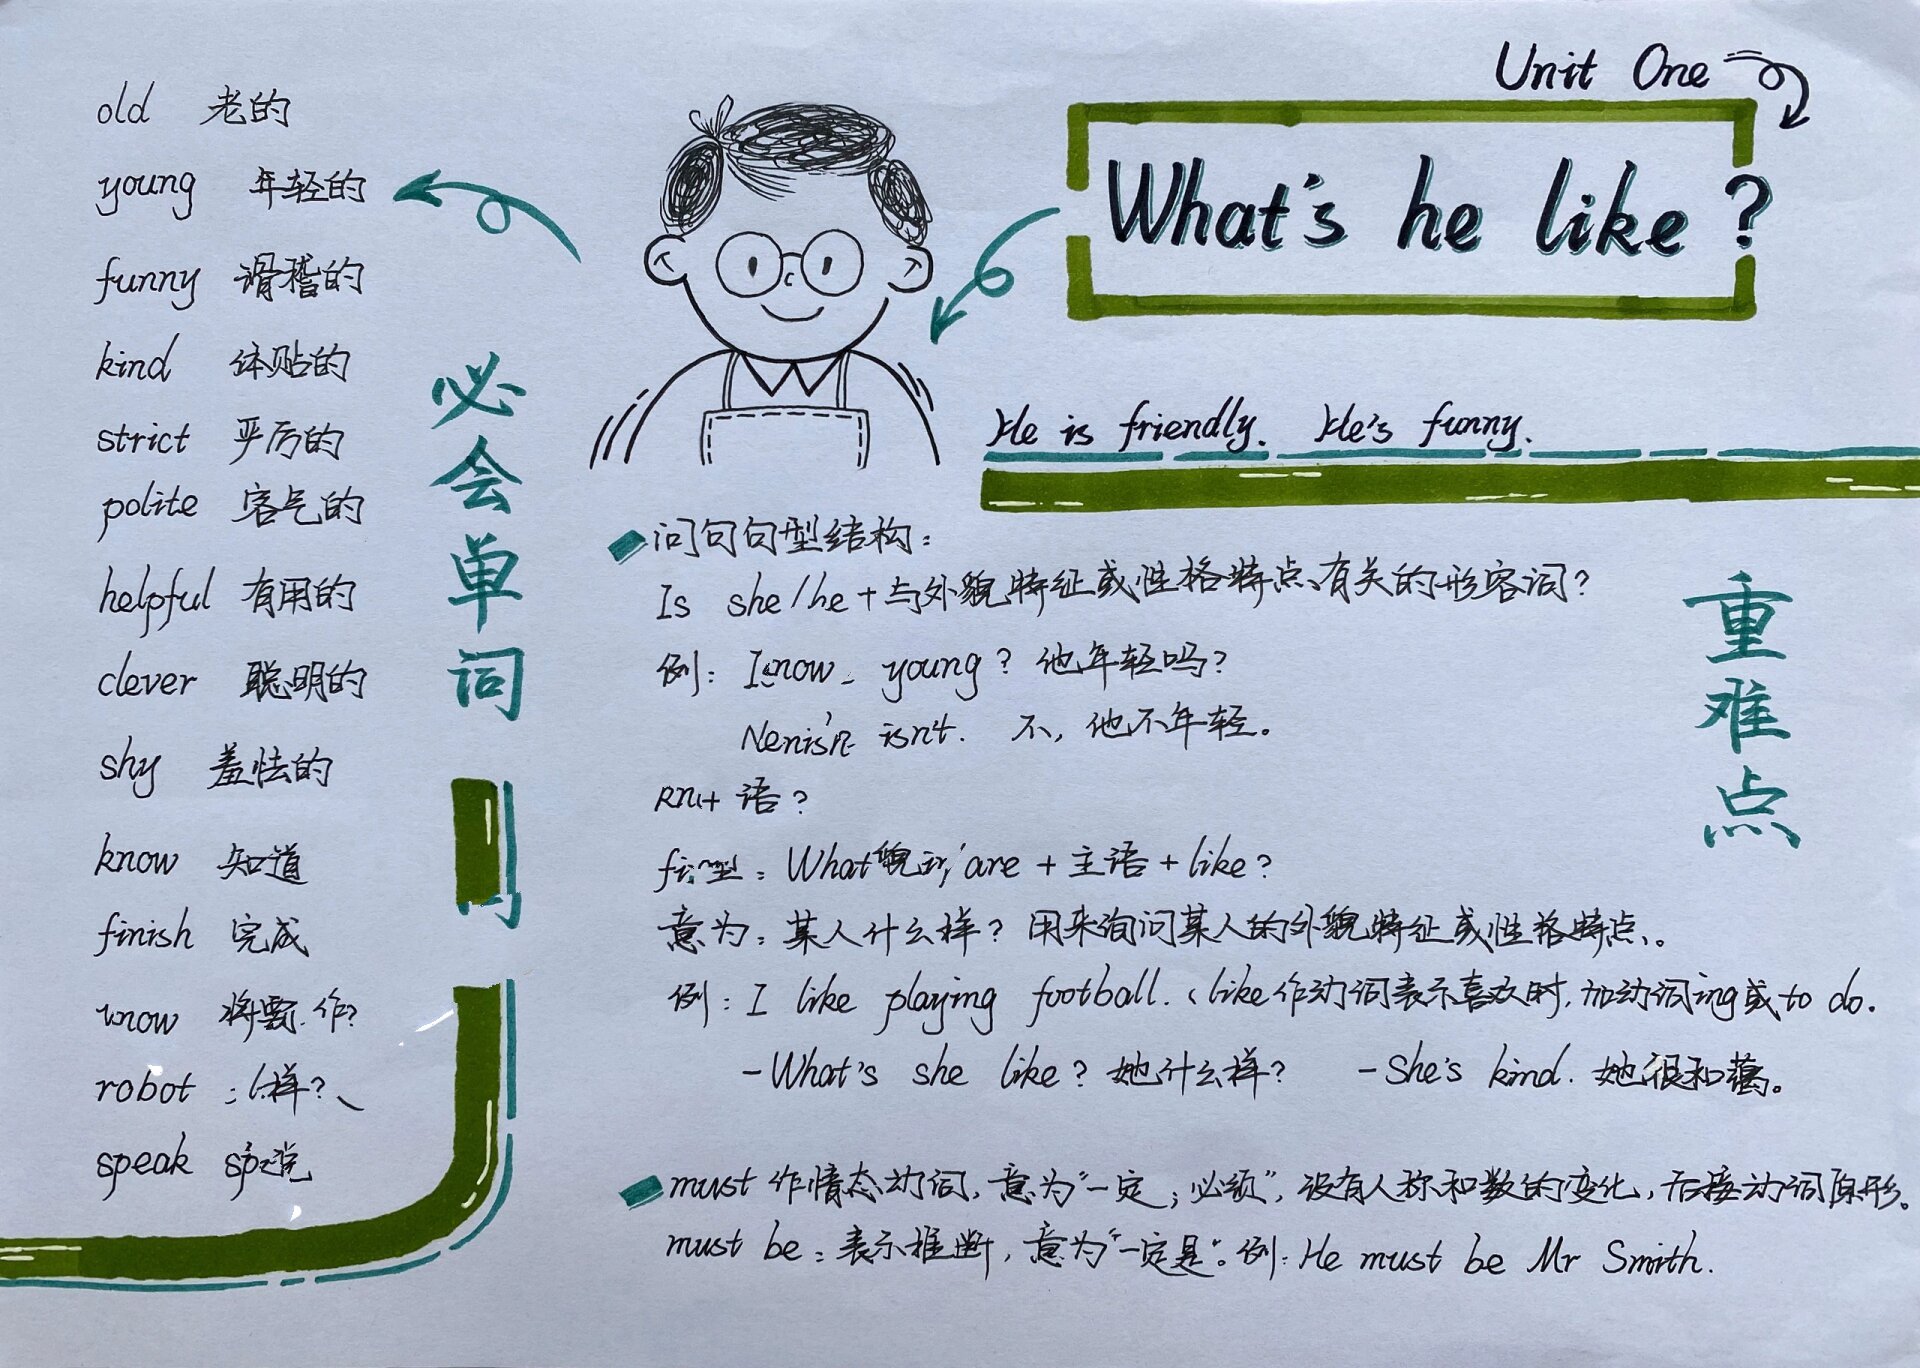 Unit One
What's he like?
He is friendly. He's funny.
old 老的
young 年轻的
funny 滑稽的
kind 体贴的
strict 严厉的
polite 客气的
helpful 有用的
clever 聪明的
shy 羞怯的
know 知道
finish 完成
将要
robot 样?
speak 说
必会单词
问句句型结构:
Is she/he+与外貌特征或性格特点有关的形容词?
例: young? 他年轻吗?
isn't. 不, 他不年轻。
语?
型: What are + 主语 + like?
意为: 某人什么样? 用来询问某人的外貌特征或性格特点。
例: I like playing football. (like作动词表示喜欢时, 加动词ing或to do.
-What's she like? 她什么样? -She's kind. 她很和蔼。
must 作情态动词, 意为"一定; 必须", 没有人称和数的变化, 后接动词原形。
must be: 表示推断, 意为"一定是"。例: He must be Mr Smith.
重难点